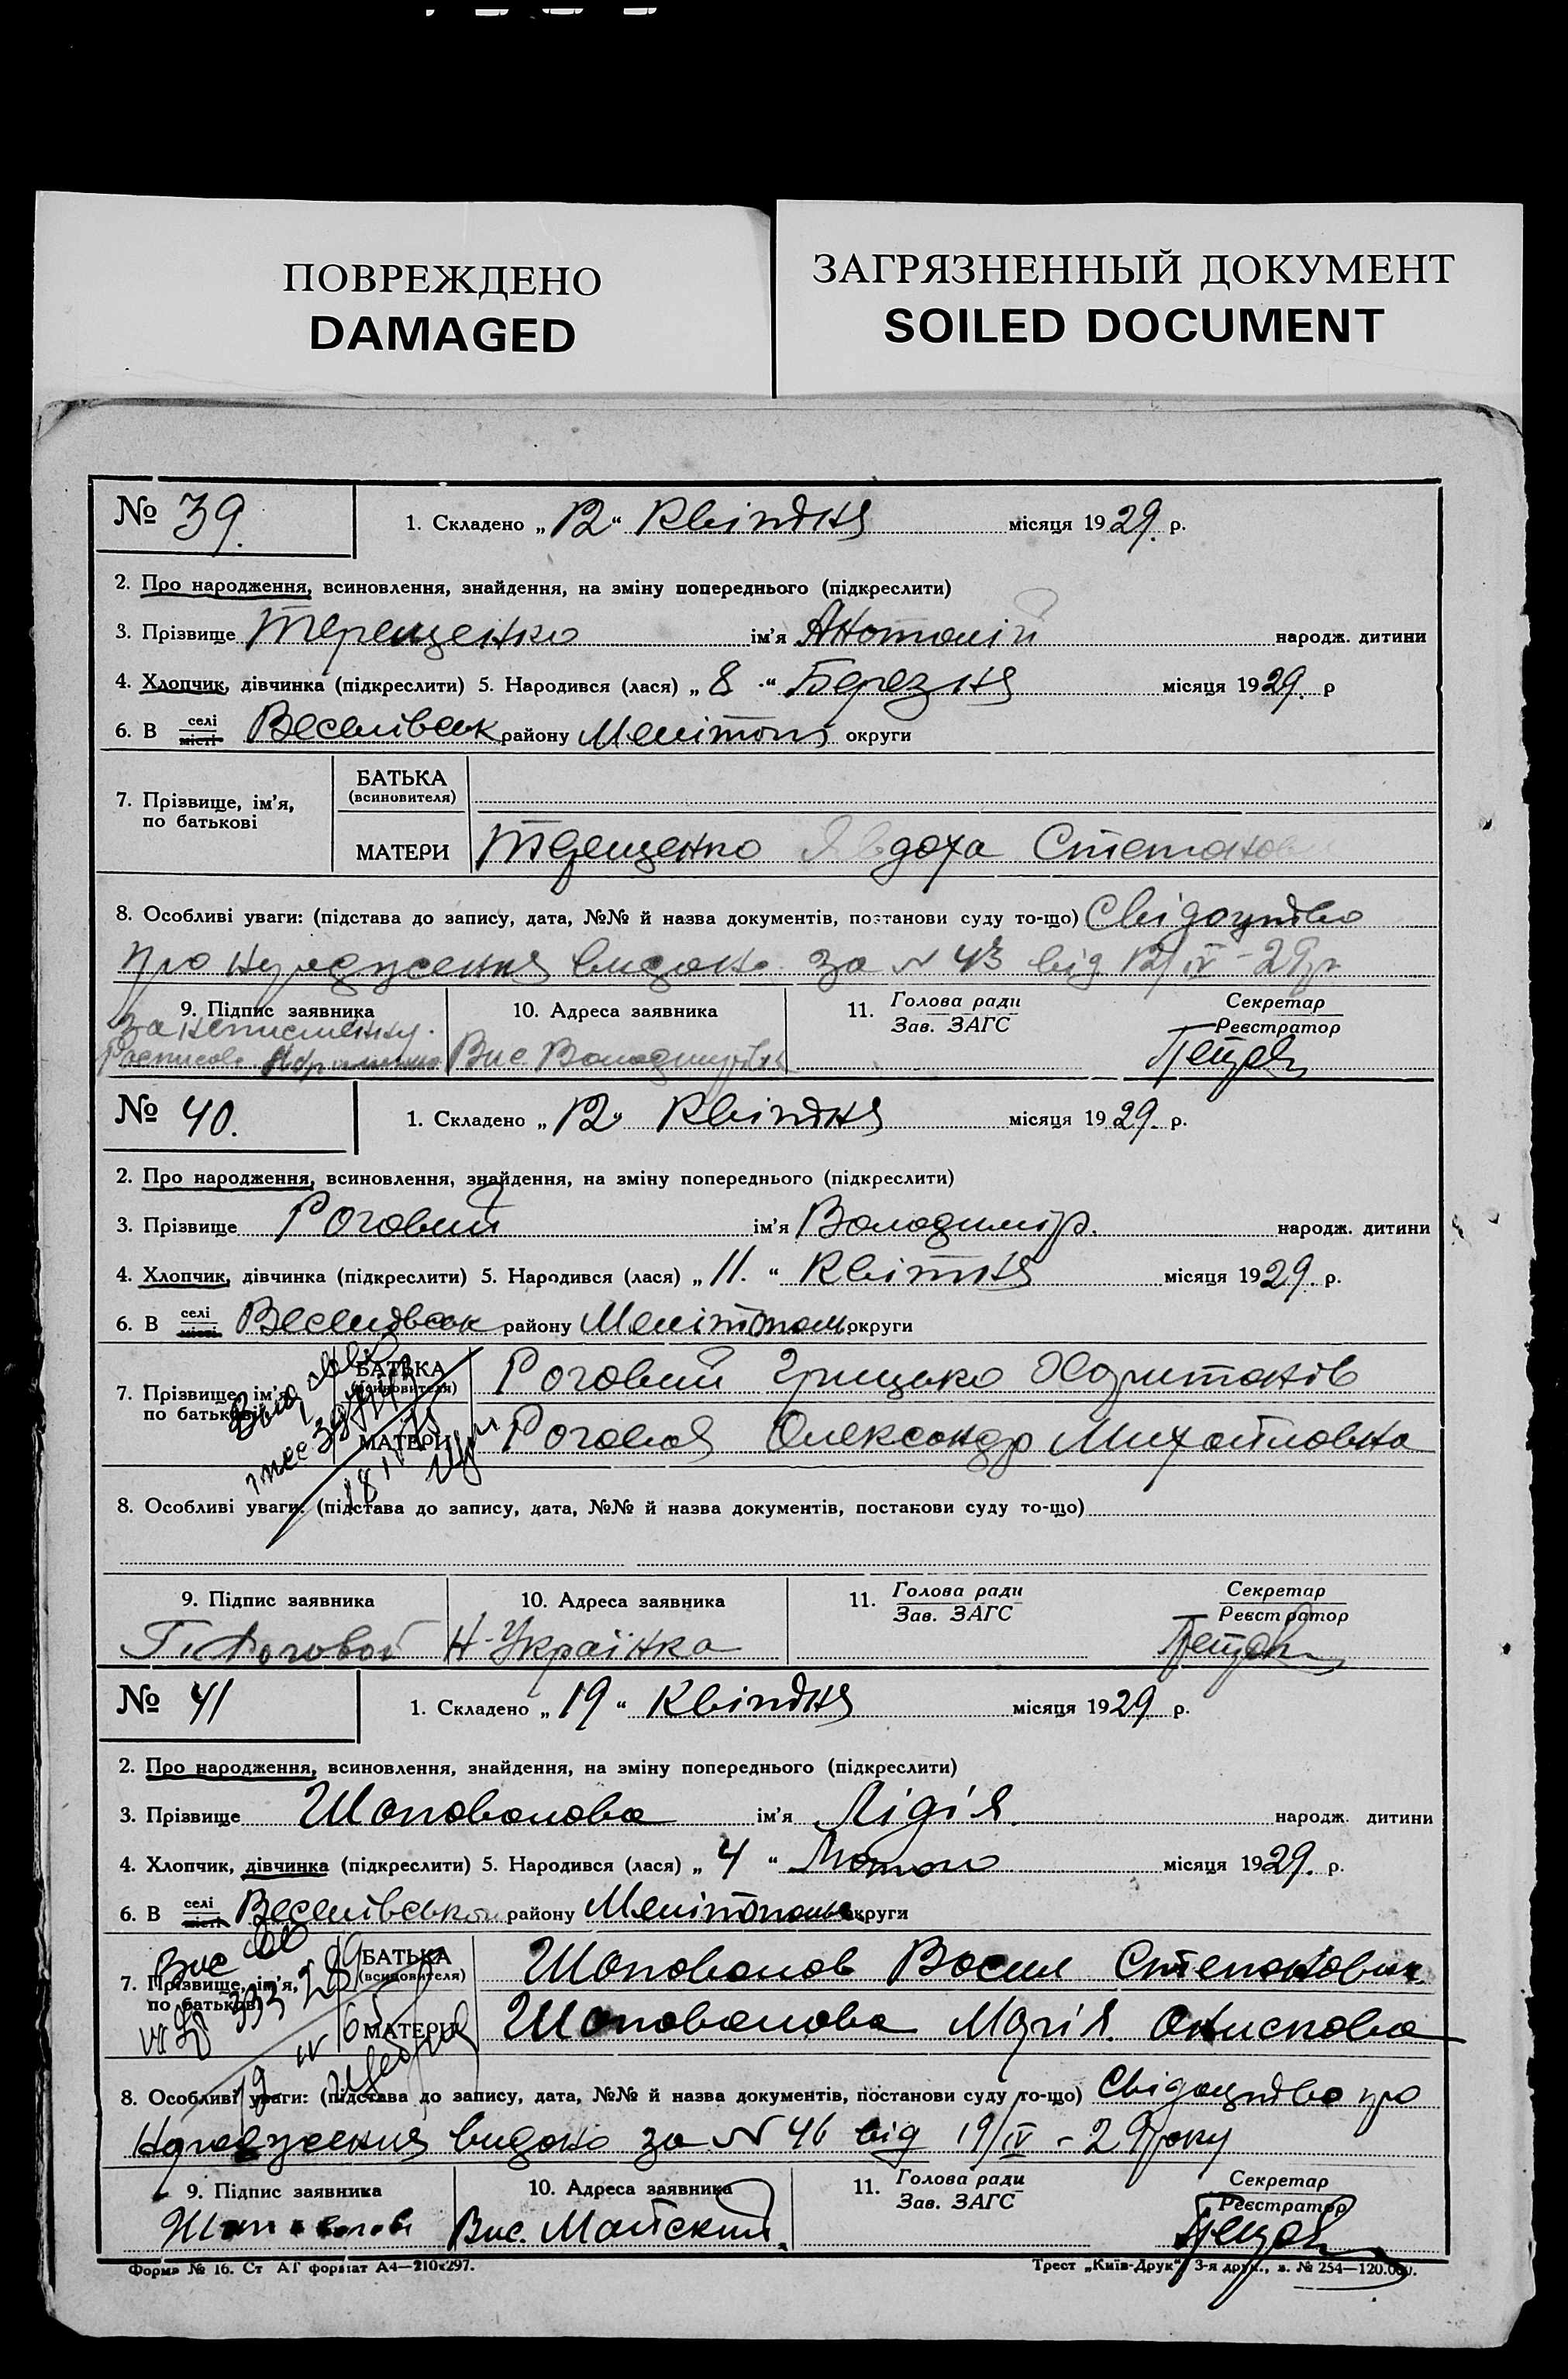 ПОВРЕЖДЕНО
DAMAGED
ЗАГРЯЗНЕННЫЙ ДОКУМЕНТ
SOILED DOCUMENT
№ 39. 1. Складено „12“ Квітдня місяця 1929. р.
2. Про народження, всиновлення, знайдення, на зміну попереднього (підкреслити)
3. Прізвище Терещенко ім’я Анатолій народж. дитини
4. Хлопчик, дівчинка (підкреслити) 5. Народився (лася) „8“ Березня місяця 1929. р
6. В селі місті Веселівськ району Мелітоп округи
7. Прізвище, ім’я, по батькові
БАТЬКА (всиновителя)
МАТЕРИ Терещенко Явдоха Степанов
8. Особливі уваги: (підстава до запису, дата, №№ й назва документів, постанови суду то-що) Свідоцтво
про народження видано за № 43 від 12/IV - 29 р
9. Підпис заявника 10. Адреса заявника 11. Голова ради Зав. ЗАГС Секретар Реєстратор
за неписменну
Вис.
№ 40. 1. Складено „12“ Квітдня місяця 1929. р.
2. Про народження, всиновлення, знайдення, на зміну попереднього (підкреслити)
3. Прізвище Роговий ім’я Володимір. народж. дитини
4. Хлопчик, дівчинка (підкреслити) 5. Народився (лася) „11.“ Квітня місяця 1929. р.
6. В селі місті району Мелітополь округи
7. Прізвище, ім’я, по батькові
БАТЬКА (всиновителя) Роговий Грицько Харитонів
МАТЕРИ Рогова Олександр Михайловна
8. Особливі уваги: (підстава до запису, дата, №№ й назва документів, постанови суду то-що)
9. Підпис заявника 10. Адреса заявника 11. Голова ради Зав. ЗАГС Секретар Реєстратор
Г. Роговой Н-Українка
№ 41 1. Складено „19“ Квітдня місяця 1929 р.
2. Про народження, всиновлення, знайдення, на зміну попереднього (підкреслити)
3. Прізвище Шаповалова ім’я Лідія. народж. дитини
4. Хлопчик, дівчинка (підкреслити) 5. Народився (лася) „4“ Лютого місяця 1929. р.
6. В селі місті Веселівськом району Мелітопольськ округи
7. Прізвище, ім’я, по батькові
БАТЬКА (всиновителя) Шаповалов Васил Степанович
МАТЕРИ Шаповалова Марія. Анисковна
8. Особливі уваги: (підстава до запису, дата, №№ й назва документів, постанови суду то-що) Свідоцтво про
народження видано за № 46 від 19/IV - 29 року
9. Підпис заявника 10. Адреса заявника 11. Голова ради Зав. ЗАГС Секретар Реєстратор
Вис. Майский.
Форма № 16. Ст АГ формат А4—210х297.
Трест „Київ-Друк“ 3-я друк., з. № 254—120.000.